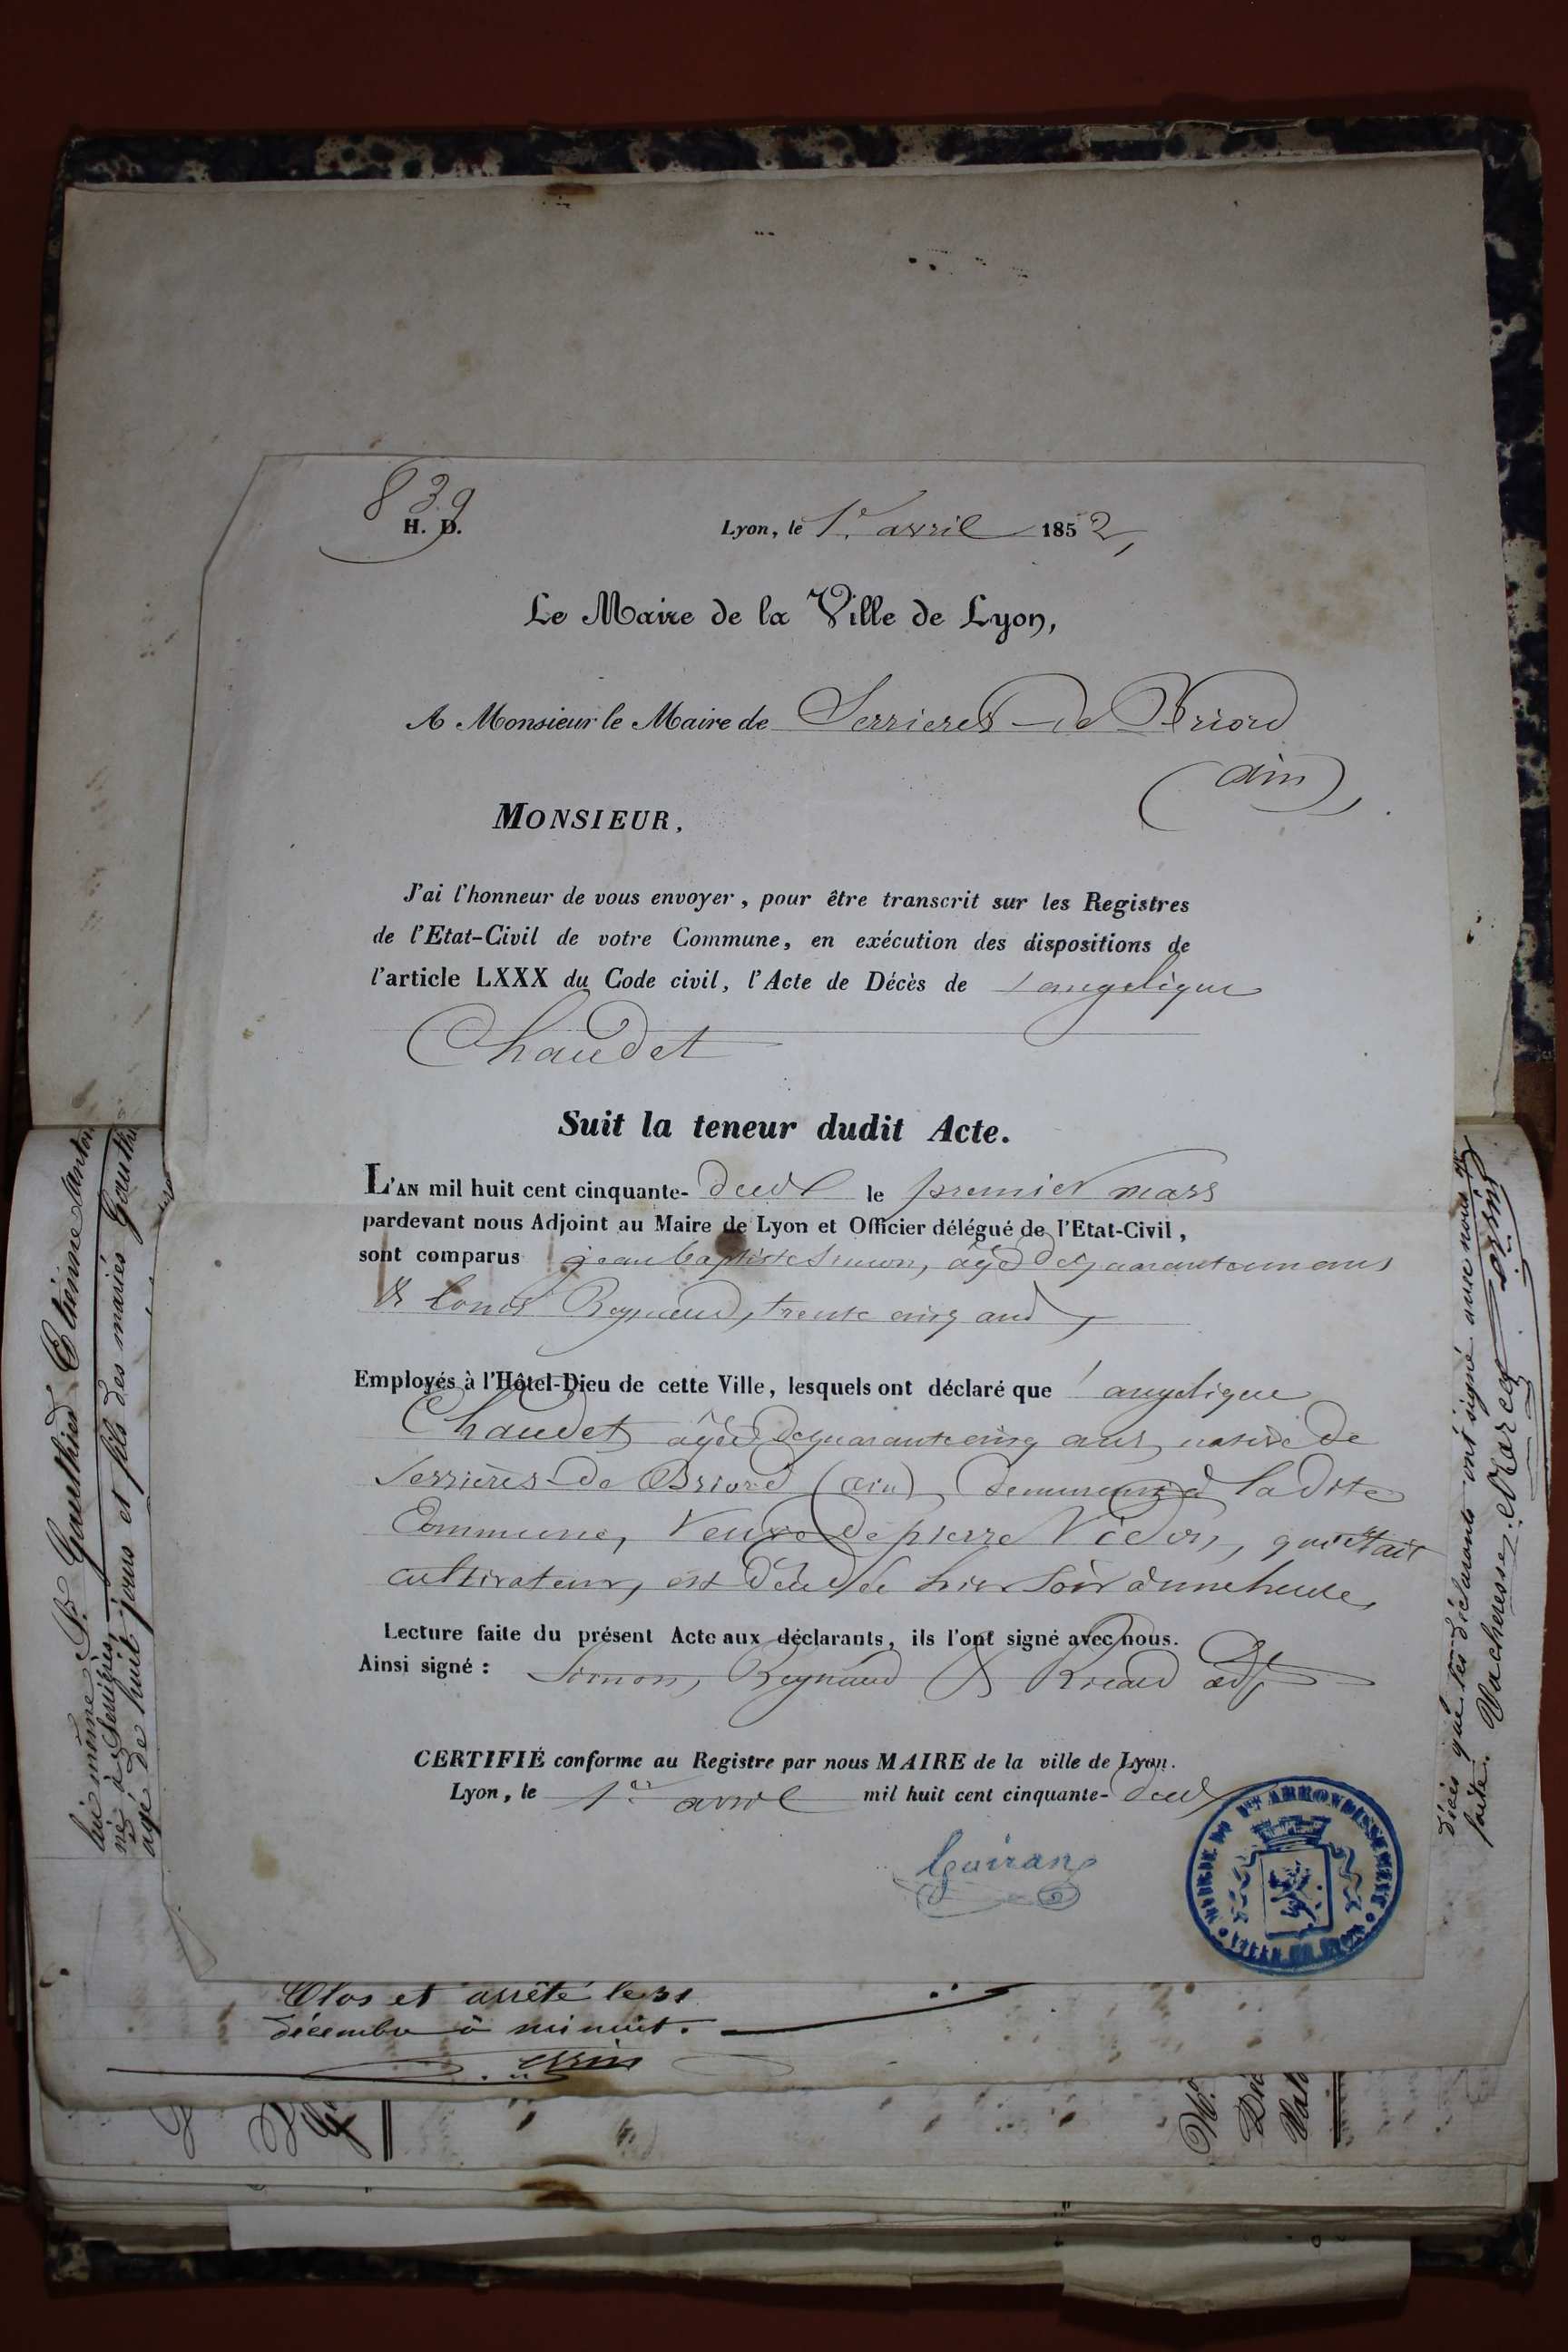 839
H. D.
Lyon, le 1er avril 1852,
Le Maire de la Ville de Lyon,
A Monsieur le Maire de Serrieres-de Briord
(ain),
MONSIEUR,
J'ai l'honneur de vous envoyer, pour être transcrit sur les Registres
de l'Etat-Civil de votre Commune, en exécution des dispositions de
l'article LXXX du Code civil, l'Acte de Décès de angelique
Chaudet
Suit la teneur dudit Acte.
L'AN mil huit cent cinquante-deux le premier mars
pardevant nous Adjoint au Maire de Lyon et Officier délégué de l'Etat-Civil,
sont comparus jean baptiste Simon, âgé de quarante un ans
& Louis Reynaud, trente cinq ans,
Employés à l'Hôtel-Dieu de cette Ville, lesquels ont déclaré que angelique
Chaudet âgée de quarante cinq ans, native de
Serrières-de Briord (ain), demeurant à la dite
Commune, Veuve de pierre Vidon, qui était
cultivateur, est décédée hier soir à une heure,
Lecture faite du présent Acte aux déclarants, ils l'ont signé avec nous.
Ainsi signé : Simon, Reynaud & adjt
CERTIFIÉ conforme au Registre par nous MAIRE de la ville de Lyon.
Lyon, le 1er avril mil huit cent cinquante-deux
MAIRIE DU 1er ARRONDISSEMENT
VILLE DE LYON
Clos et arrêté le 31
décembre à minuit.
lui même P. Gaulthier Etienne anton
né à Serrières,
agé de huit jours et fils des mariés Gaulthi
décès que les déclarants ont signé avec nous
faite. Vacheresse. Marcel